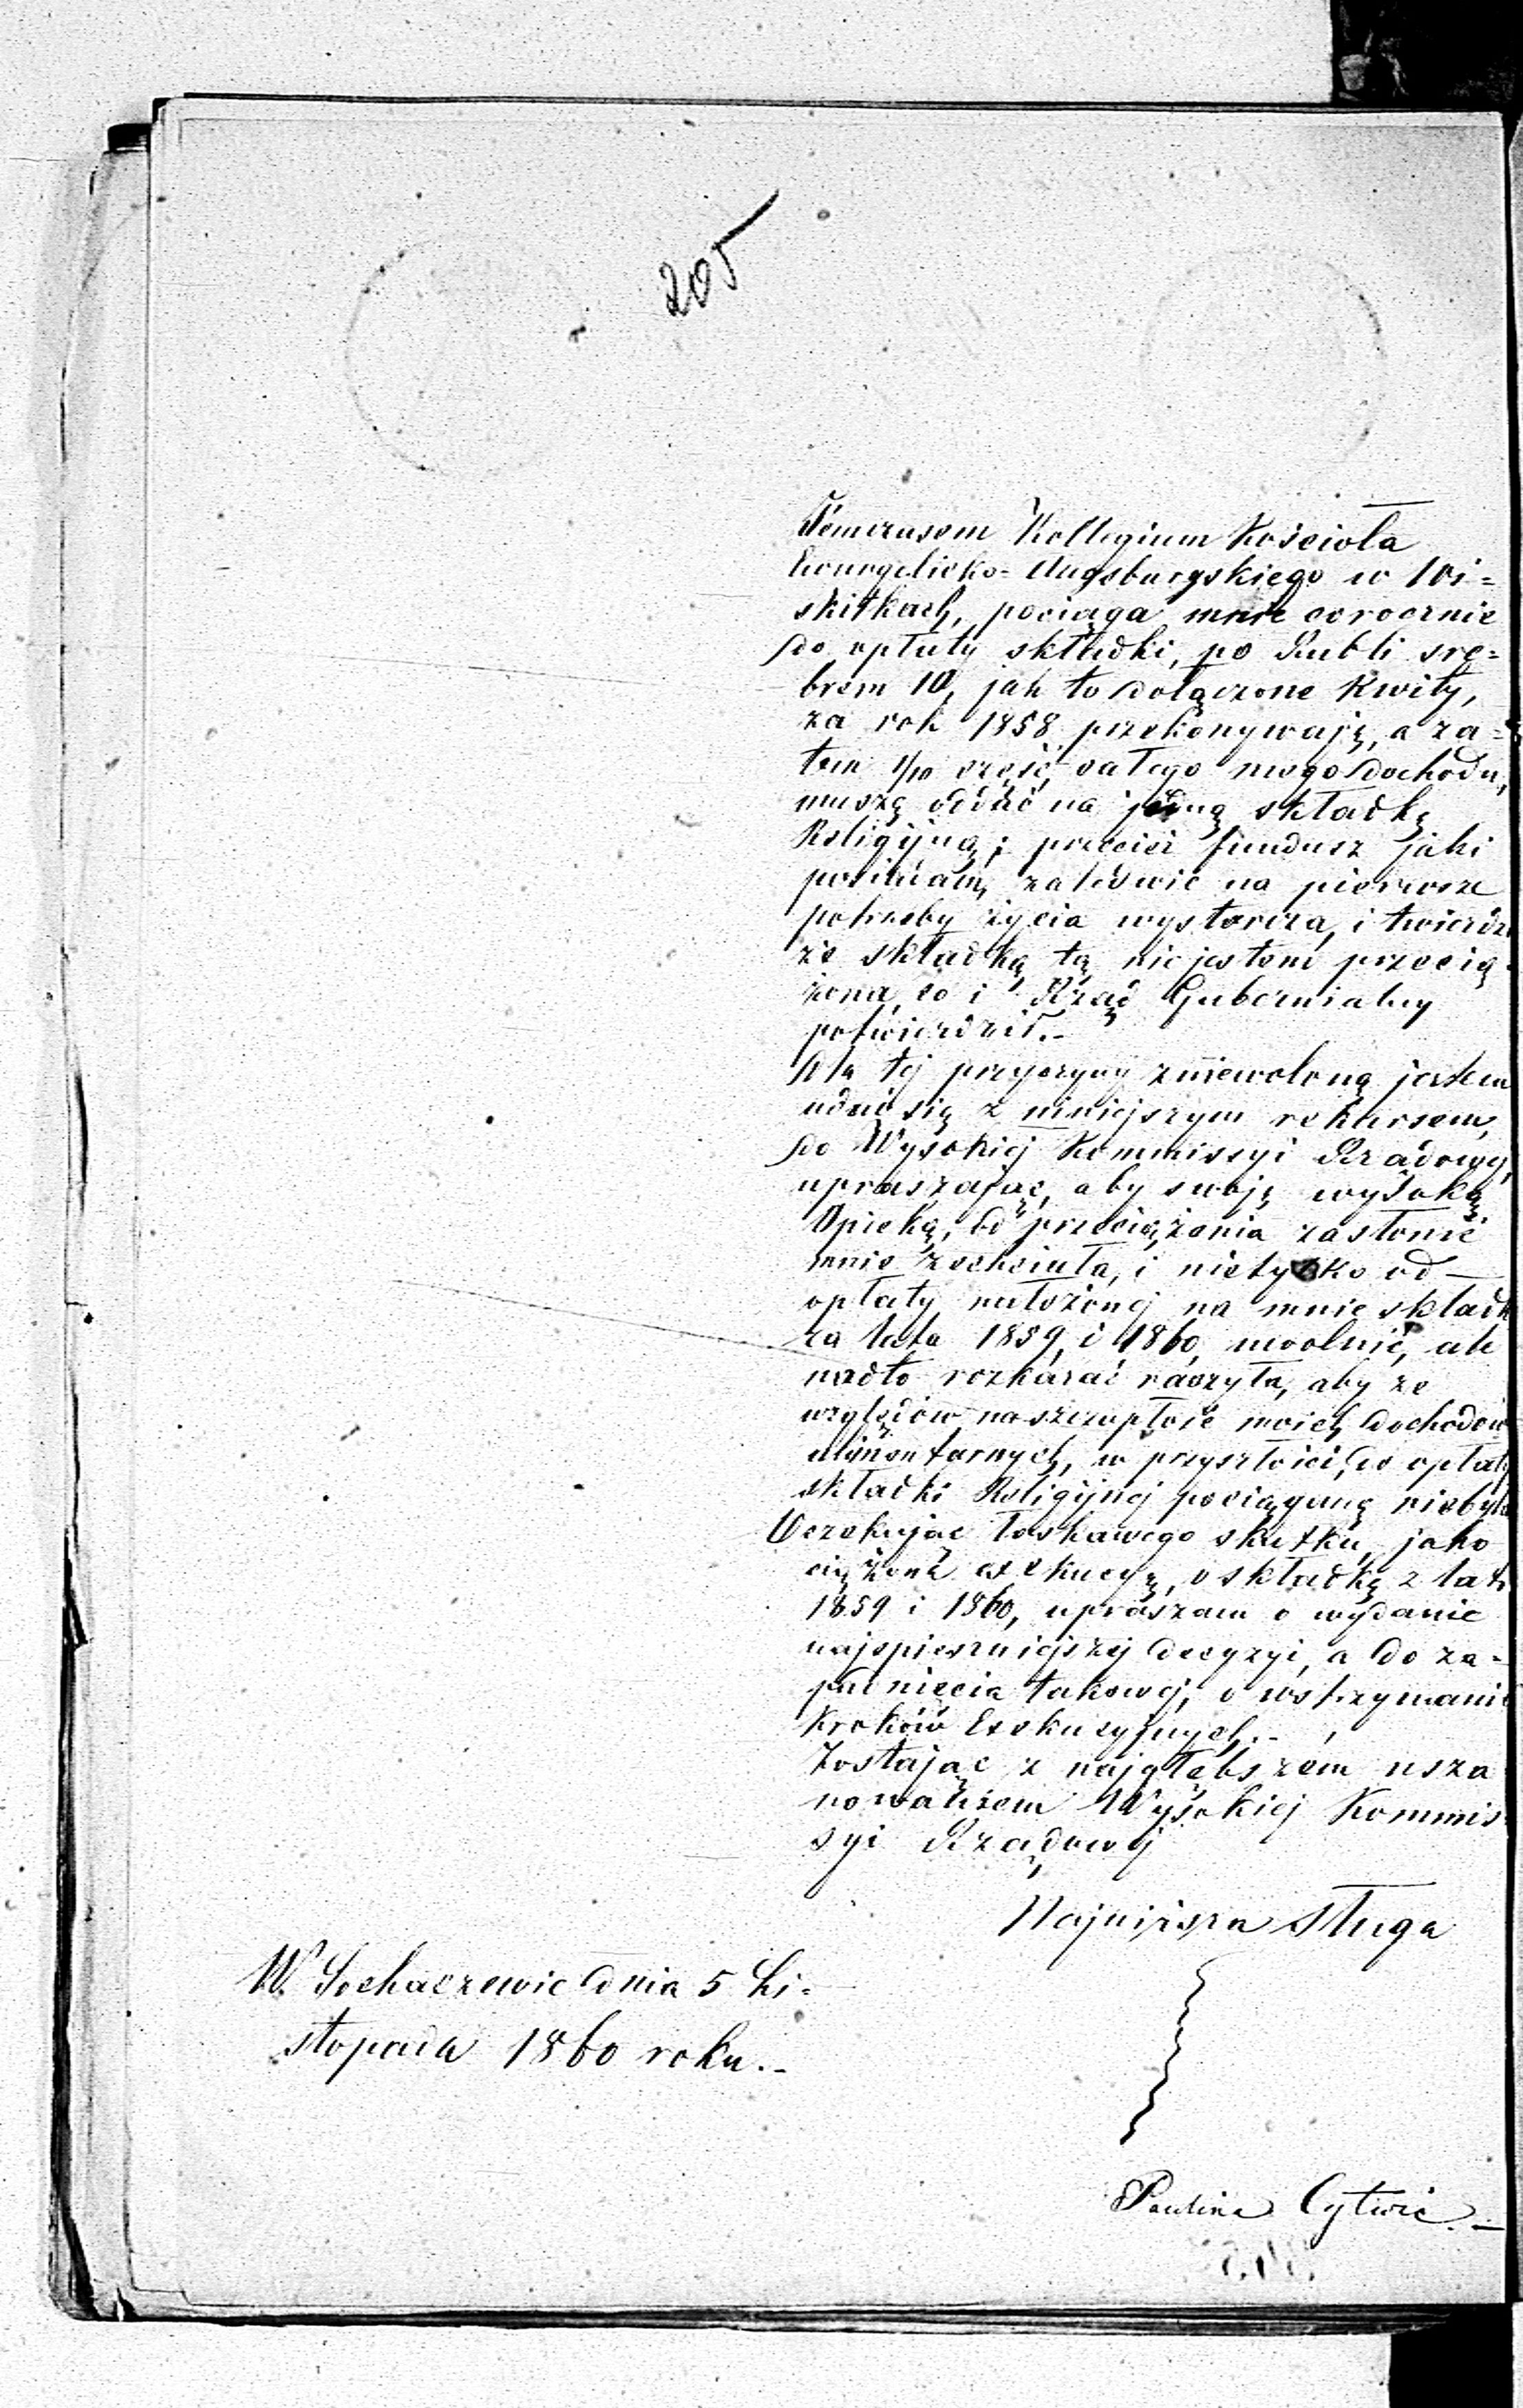 205
Temczasem Kollegium Kościoła
Ewangelicko-Augsburgskiego w Wi=
skitkach, pociąga mnie corocznie
do opłaty składki, po Rubli sre=
brem 10, jak to dołączone Kwity,
za rok 1858 przekonywają, a za=
tem 1/10 część całego mego dochodu,
muszę oddać na jedną składkę
Religijną; przecież fundusz jaki
posiadam, zaledwie na pierwsze
potrzeby życia wystarcza, i twierdzę
że składką tą jestem przecią
żoną, co i Rząd Gubernialny
potwierdził.-
Dla tej przyczyny zniewoloną jestem
udać się z niniejszym rekursem,
do Wysokiej Kommissyi Rządowej,
upraszając, aby swoją wysoką
Opieką, od przeciążenia zasłonić
mnie zechciała, i nietylko od
opłaty nałożonej na mnie składki
za lata 1859, i 1860, uwolnić, ale
nadto rozkazać raczyła, aby ze
względów na szczupłość moich dochodów
alimentarnych, w przyszłości, do opłaty
składki Religijnej pociąganą niebyła
Oczekując łaskawego skutku, jako
ciążona exekucyą, o składkę z lat
1859 i 1860, upraszam o wydanie
najspieszniejszej decyzyi, a do za-
padnięcia takowej, o wstrzymanie
Kroków Exekucyjnych.-
Zostając z najgłębszém usza
nowaniem Wysokiej Kommis
syi Rządowej
Najniższa Sługa
W Sochaczewie dnia 5 Li=
stopada 1860 roku.-
Paulina